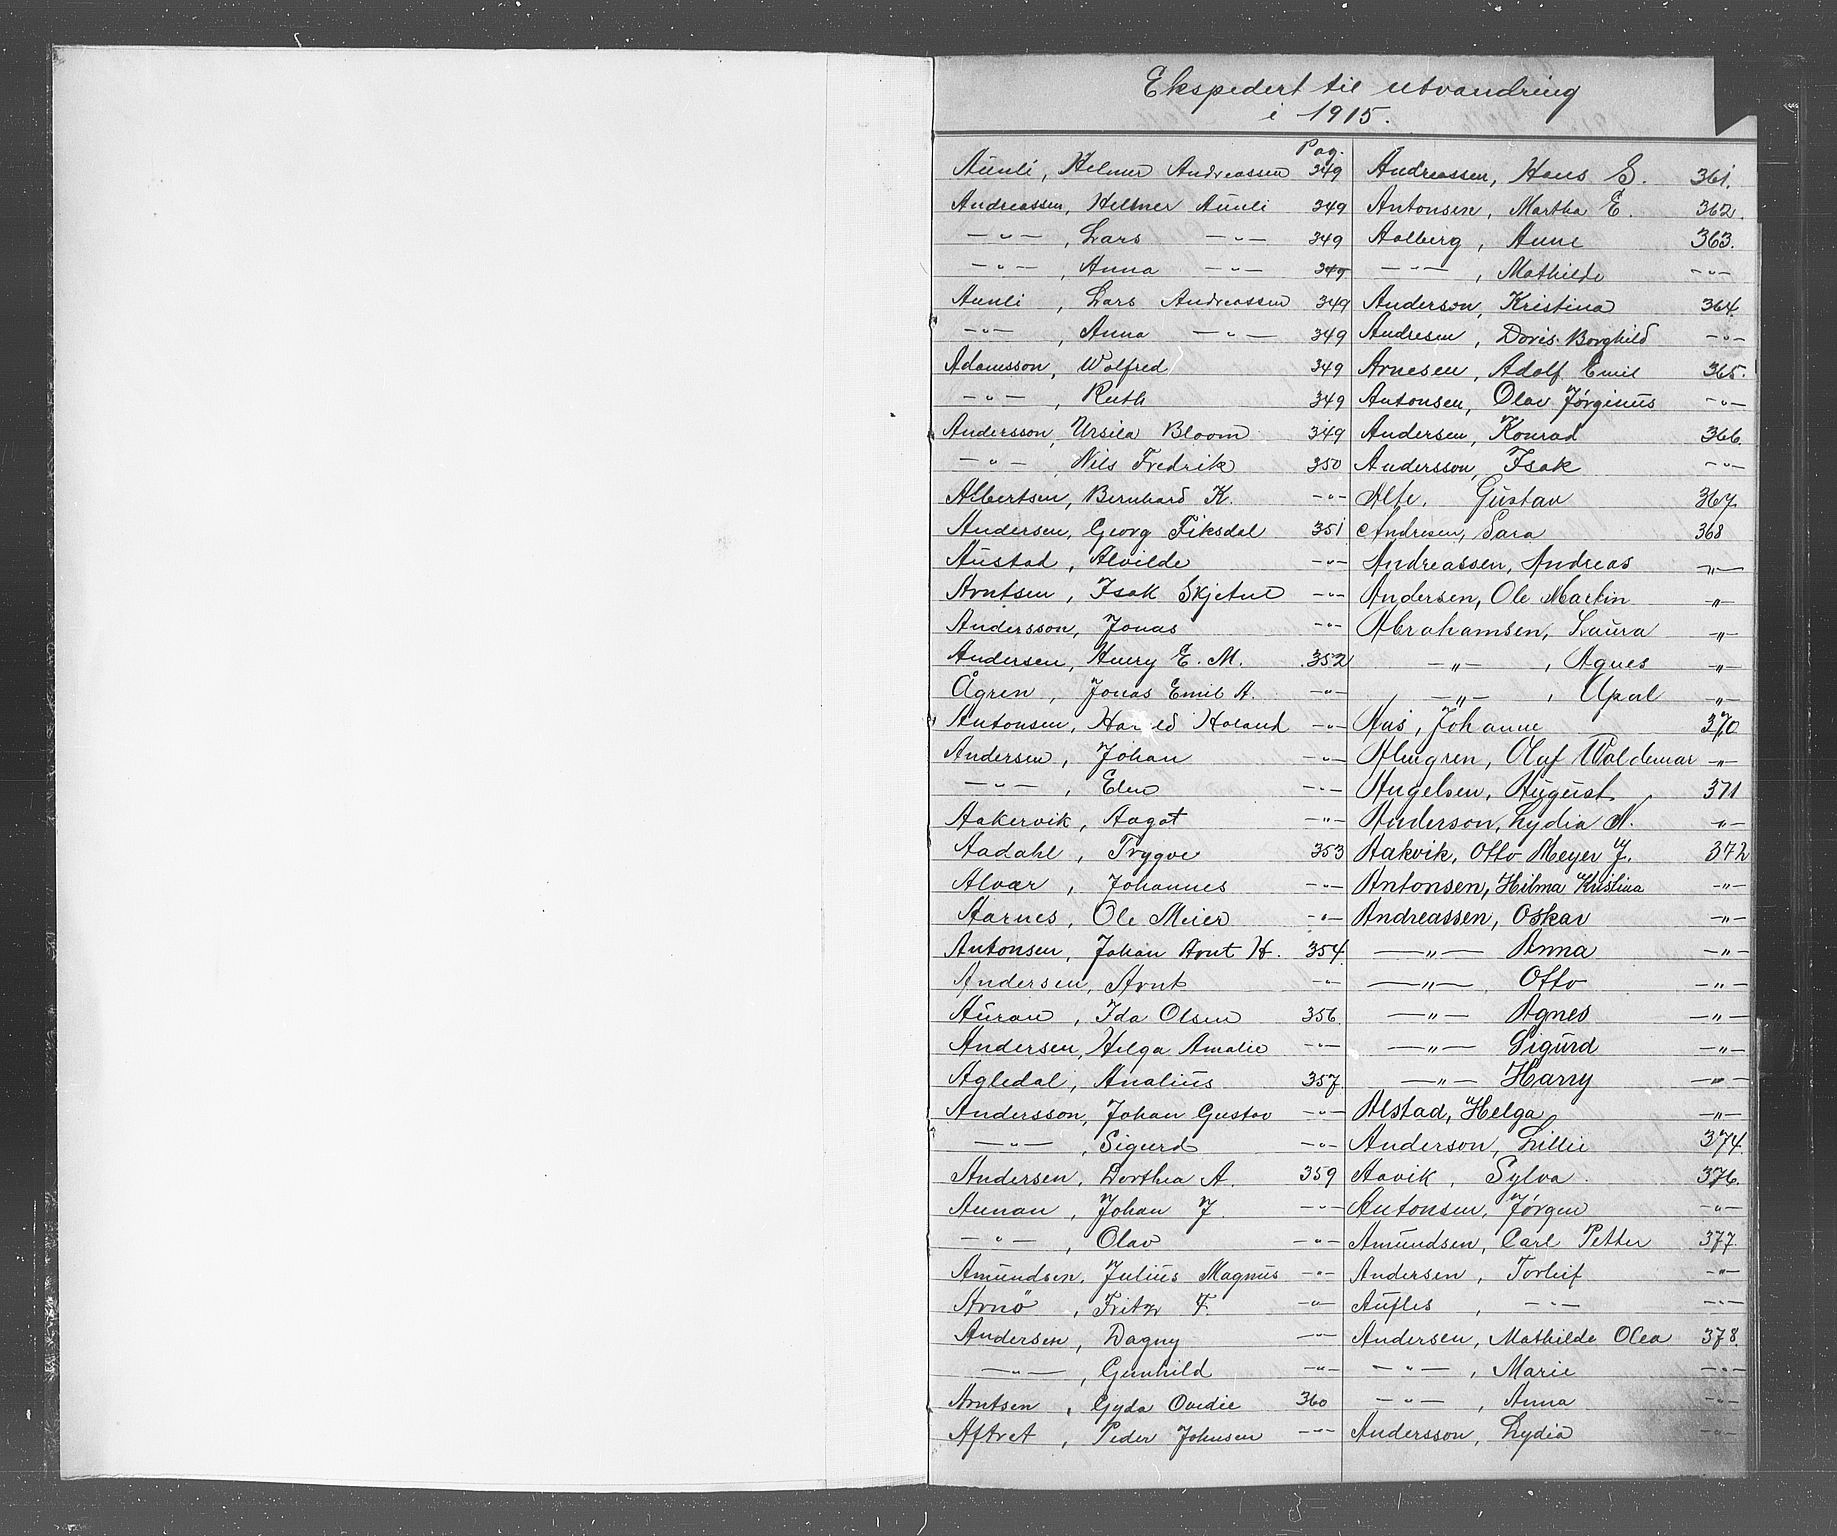 Ekspedert til utvandring
i 1915.
Pag.
Aunli, Helmer Andreassen 349
Andreassen, Helmer Aunli 349
—"— , Lars —"— 349
—"— , Anna —"— 349
Aunli , Lars Andreassen 349
—"— , Anna —"— 349
Adamsson, Wolfred 349
—"— , Ruth 349
Andersson, Ursila Bloom 349
—"— , Nils Fredrik 350
Albertsen, Bernhard K. —"—
Andersen, Georg Fiksdal 351
Austad, Alvilde —"—
Arntsen, Isak Skjetne —"—
Andersson, Jonas —"—
Andersen, Henry E. M. 352
Ågren, Jonas Emil A. —"—
Antonsen, Harald Haland —"—
Andersen, Johan —"—
—"— , Elen —"—
Aakervik, Aagot —"—
Aadahl, Trygve 353
Alvær, Johannes —"—
Aarnes, Ole Meier —"—
Antonsen, Johan Arnt H. 354
Andersen, Arnt —"—
Auran, Ida Olsen 356
Andersen, Helga Amalie —"—
Agledal, Analius 357
Andersson, Johan Gustav —"—
—"— , Sigurd —"—
Andersen, Dorthea A. 359
Aunan, Johan J. —"—
—"— , Olav —"—
Amundsen, Julius Magnus —"—
Arnö, Fritz F. —"—
Andersen, Dagny —"—
—"— , Gunhild —"—
Arntsen, Gyda Ovedie 360
Aftret, Peder Johnsen —"—
Andreassen, Hans E. 361.
Antonsen, Martha E. 362.
Aalberg, Anne 363.
—"— , Mathilde —"—
Anderson, Kristina 364.
Andresen, Doris Borghild —"—
Arnesen, Adolf Emil 365.
Antonsen, Olav Jørginus —"—
Andersen, Konrad 366.
Andersson, Isak —"—
Alte, Gustav 367
Andresen, Sara 368
Andreassen, Andreas —"—
Andersen, Ole Martin —"—
Abrahamsen, Laura —"—
—"— , Agnes —"—
—"— , —"—
Aas, Johanne 370
Almgren, Olaf Waldemar —"—
Angelsen, August 371
Anderson, Lydia N. —"—
Aakvik, Otto Meyer J. 372
Antonsen, Hilma Kristina —"—
Andreassen, Oskar —"—
—"— Anna —"—
—"— Otto —"—
—"— Agnes —"—
—"— Sigurd —"—
—"— Harry —"—
Alstad, Helga —"—
Anderson, Lillie 374
Aavik, Sylva 376.
Antonsen, Jørgen —"—
Amundsen, Carl Petter 377
Andersen, Torleif —"—
Aufles, —"— —"—
Andersen, Mathilde Olea 378.
—"— , Marie —"—
—"— , Anna —"—
Andersson, Lydia —"—